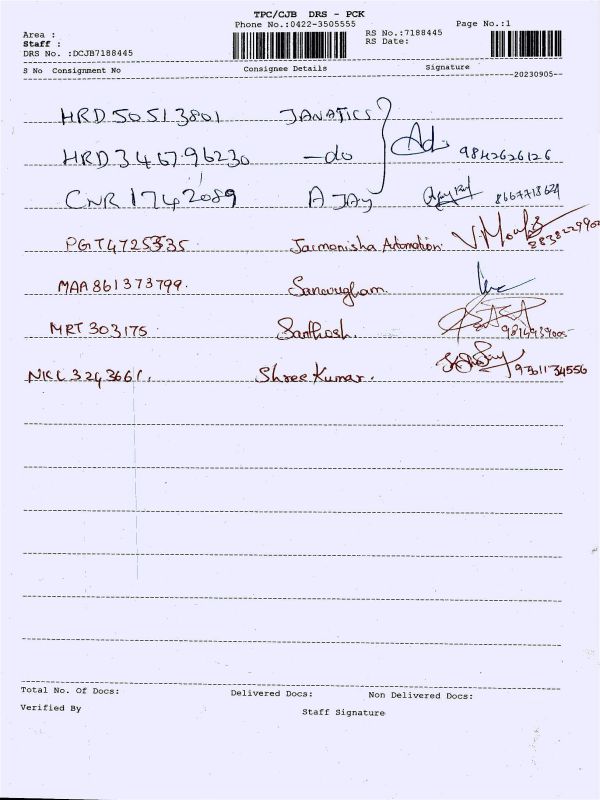 TPC/CJB DRS - PCK
Phone No.:0422-3505555
Page No.:1
Area :
RS No.:7188445
Staff :
RS Date:
DRS No. :DCJB7188445
S No Consignment No Consignee Details Signature
20230905
HRD50513801 JANATICS
HRD346796230 -do 9842626126
CNR 1742089 AJAY
PGT4725335 Jaimonisha Automation.
MAA861373799. Sanmugham
MRT 303175 Santhosh.
NKL3243661. Shree Kumar. 9361134556
Total No. Of Docs: Delivered Docs: Non Delivered Docs:
Verified By Staff Signature